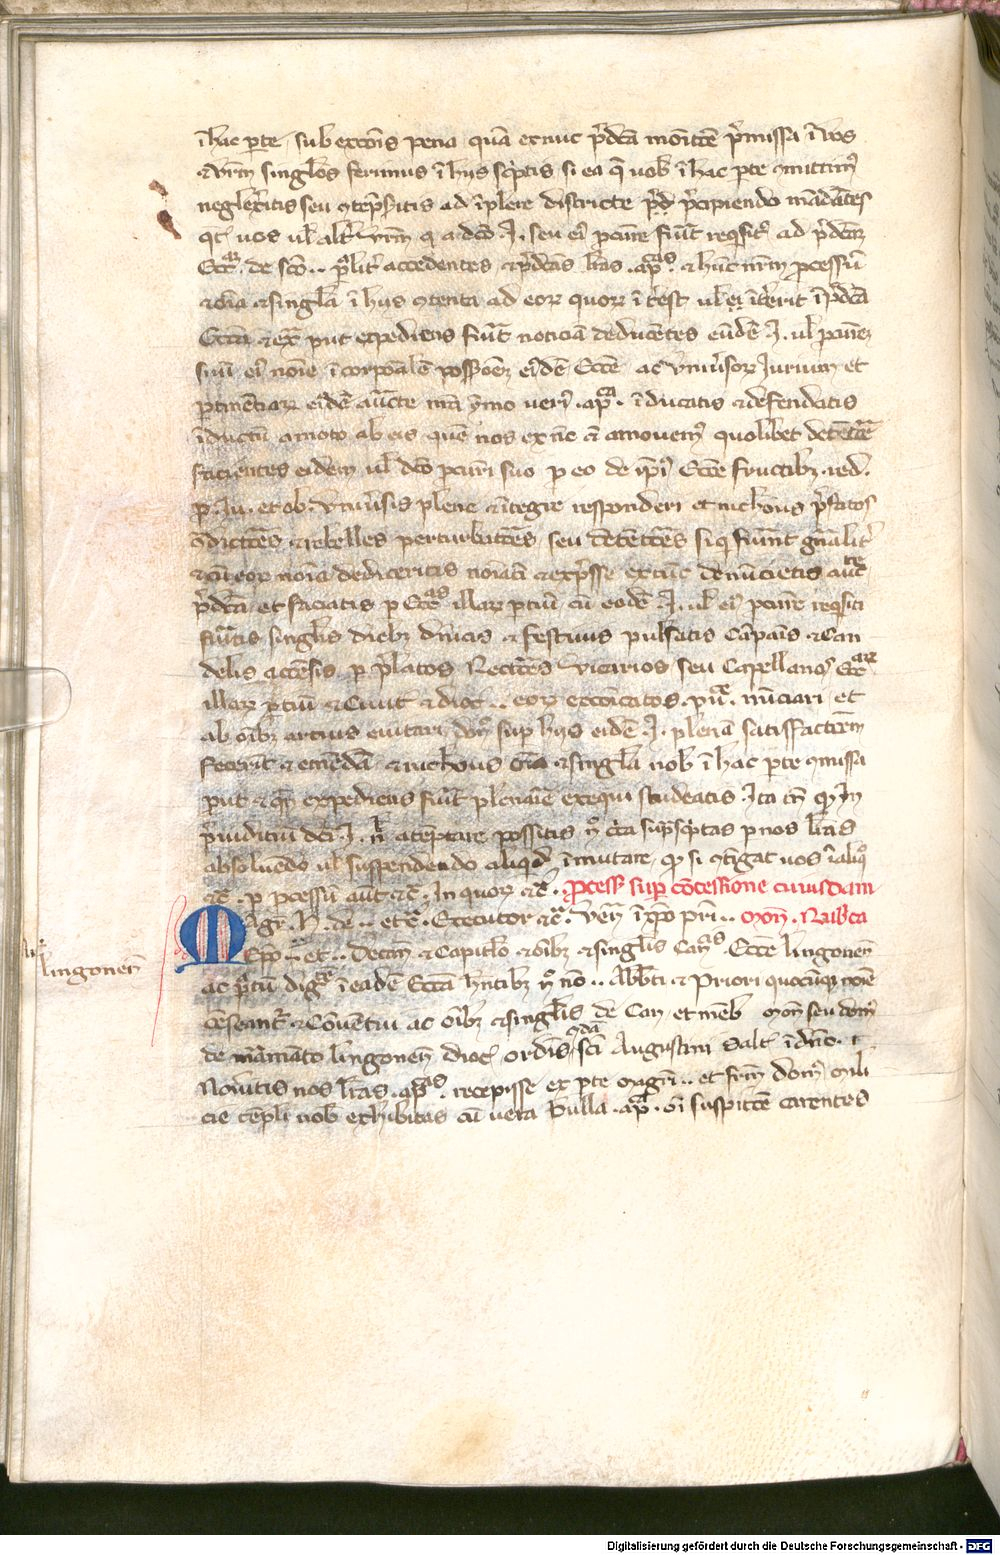 ī hac pte sub excōīs pena quā ex nūc p̄dcā monitōe p̄missa ī vos
⁊ vrm̄ singl̄os ferimus ī hijs sc̄ptis si ea q̄ uob̄ ī hac pte ꝯmittim᷒
neglex̄itis seu ꝯtēps̄itis ad īplere districte p̄cipiendo mādātes
qt̄ uos ul̄ alt̄ vrm̄ q a dc̄o .J. seu ei᷒ pcūre fūit reqsit᷒ ad p̄dcām
Ecc̄am de sc̄o .. p̄līt accedentes ⁊ p̄dcās lr̄as .ap̄cas. ⁊ hūc nr̄m pcessū
⁊ oīa ⁊ singl̄a ī hijs ꝯtenta ad eoꝝ quoꝝ īt̄est ul̄ īt̄erit ī p̄dcā
Ecc̄ia ⁊ ext̄ put expediens fūit noticiā deducētes eūdē .J. ul̄ pcūrem
suū ei᷒ noīe ī corpoalē possōem ei᷒dē Ecc̄e ac vniu᷒soꝝ Jurium et
ptinētiaꝝ ei᷒dē auc̄te nr̄a ymo ueri᷒ .ap̄ca. īducatis ⁊ defendatis
īductū amoto ab eis quē nos ex nc̄ amouem᷒ quolibet detētōe
facientes eidem ul̄ dc̄o pcuri suo p eo de ip̄i᷒ Ecc̄e fructibꝫ .red.
p. Ju. et ob. vniu᷒sis plene ⁊ ītegre responderi et nichōīus p̄fatos
ꝯdictōes ⁊ rebelles perturbatōes seu detētōes siq̄ fūint gn̄alit᷒
⁊ cū eoꝝ noīa dediceritis noīati ⁊ exp̄sse exc̄ūe denūcietis auc̄te
p̄dcā et faciatis p Ecc̄as illaꝝ ptiū cū eodē .J. ul̄ ei᷒ pcūre reqsiti
fūitis singl̄is dieb᷒ dn̄icis ⁊ festiuis pulsatis cāpanis ⁊ Can
delis accēsis p p̄latos Rectōes vicarios seu Capellanos Ecc̄aꝝ
illaꝝ ptiū ⁊ Ciuit̄ ⁊ dioc̄ .. eoꝝ excōīcatos .pu᷒. nūciari et
ab oībꝫ artius euitari don᷒ sup hijs eidē .J. plenā satisfactōem
fecerit ⁊ emēdā ⁊ nichōīus oīa ⁊ singl̄a uob̄ ī hac pte ꝯmissa
put ⁊ qn̄ expediens fūit plenarie exequi studeatis Jta tn̄ qꝫ in
p̄iudiciū dc̄i .J. n̄l atēptare possitis n᷒ ca sup̄sc̄ptas p nos lr̄as
absoluēdo ul̄ suspendendo aliqd ī mutare qꝫ si ꝯtīgat uos ī aliq᷒
⁊c̄ . p pcessū aut̄ ⁊c̄. Jn quoꝝ ⁊c̄. pcess sup cōcessione cuiusdam
Mgr̄. H. de .. et ⁊c̄. Executor ⁊c̄. Vēn ī xp̄o pr̄i .. mon̄. Rub̄ca
Ep̄o .. et .. Decan̄ ⁊ Capitl̄o ⁊ oībꝫ ⁊ singl̄is Can̄cis Ecc̄e lingonen̄
lingonen̄
ac p̄tū dig᷒ ī eadē Ecc̄ia hn̄tibꝫ n᷒ nō .. Abb̄ti ⁊ Priori quocūqꝫ noīe
cēseant᷒ ⁊ Cōuentui ac oībꝫ ⁊ singl̄is de Can̄ et mēb᷒ mon̄ seu dom᷒
de lingonen̄ dioc̄ ordīs sc̄i Augustini salt̄ ī dn̄o. ⁊
Nou᷒itis nos lr̄as .ap̄cas. recepisse ex pte magr̄i .. et fr̄m dom᷒ mili
cie tēpli nob̄ exhibitas cū uera bulla .ap̄ca. oī suspitōe carentes
Digitalisierung gefördert durch die Deutsche Forschungsgemeinschaft - DFG